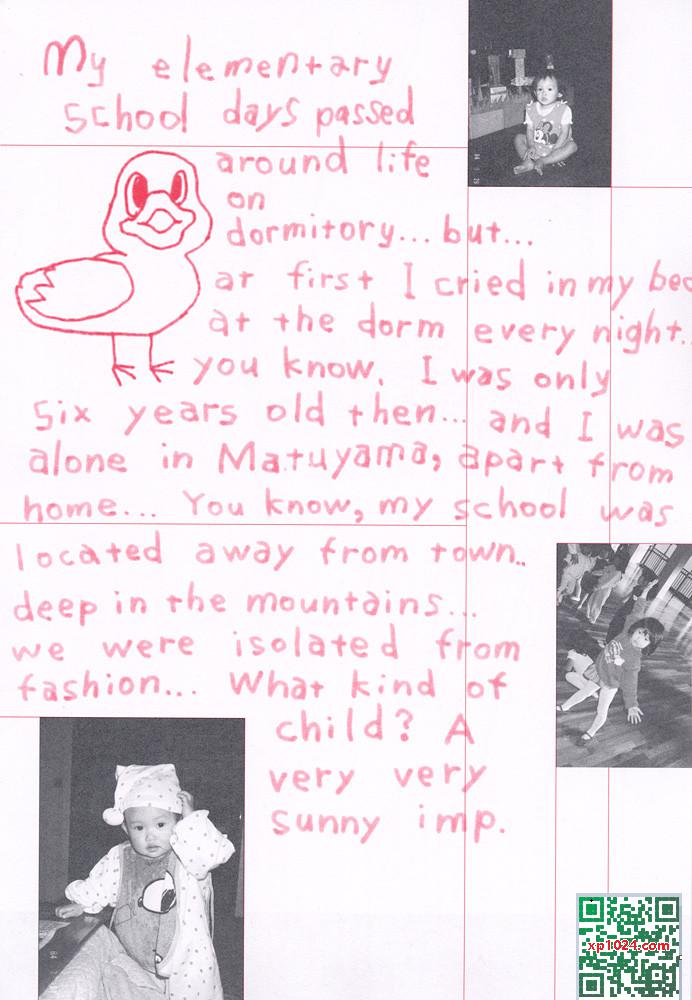 My elementary
school days passed
around life
on
dormitory... but...
at first I cried in my bed
at the dorm every night..
you know, I was only
six years old then... and I was
alone in Matuyama, apart from
home... You know, my school was
located away from town..
deep in the mountains...
we were isolated from
fashion... What kind of
child? A
very very
sunny imp.
xp1024.com